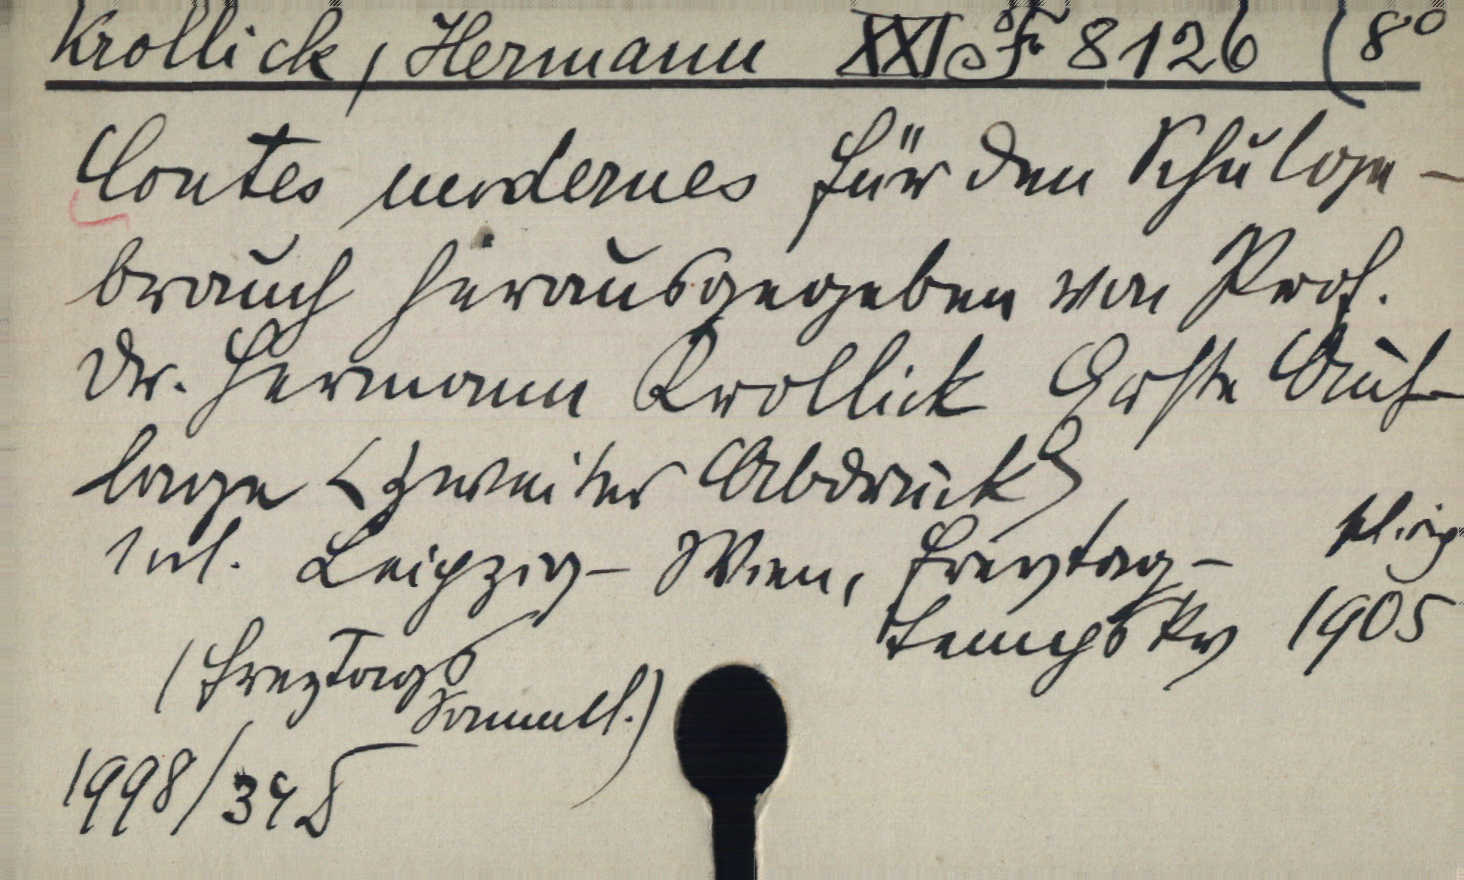 Krollick, Hermann XXI s F 8126 (8°
Contes modernes für den Schulge-
brauch herausgegeben von Prof.
Dr. Hermann Krollick Erste Auf-
lage <Zweiter Abdruck>
Leipzig-Wien, Freytag-
Tempsky 1905
(Freytags
Samml.)
1998/34